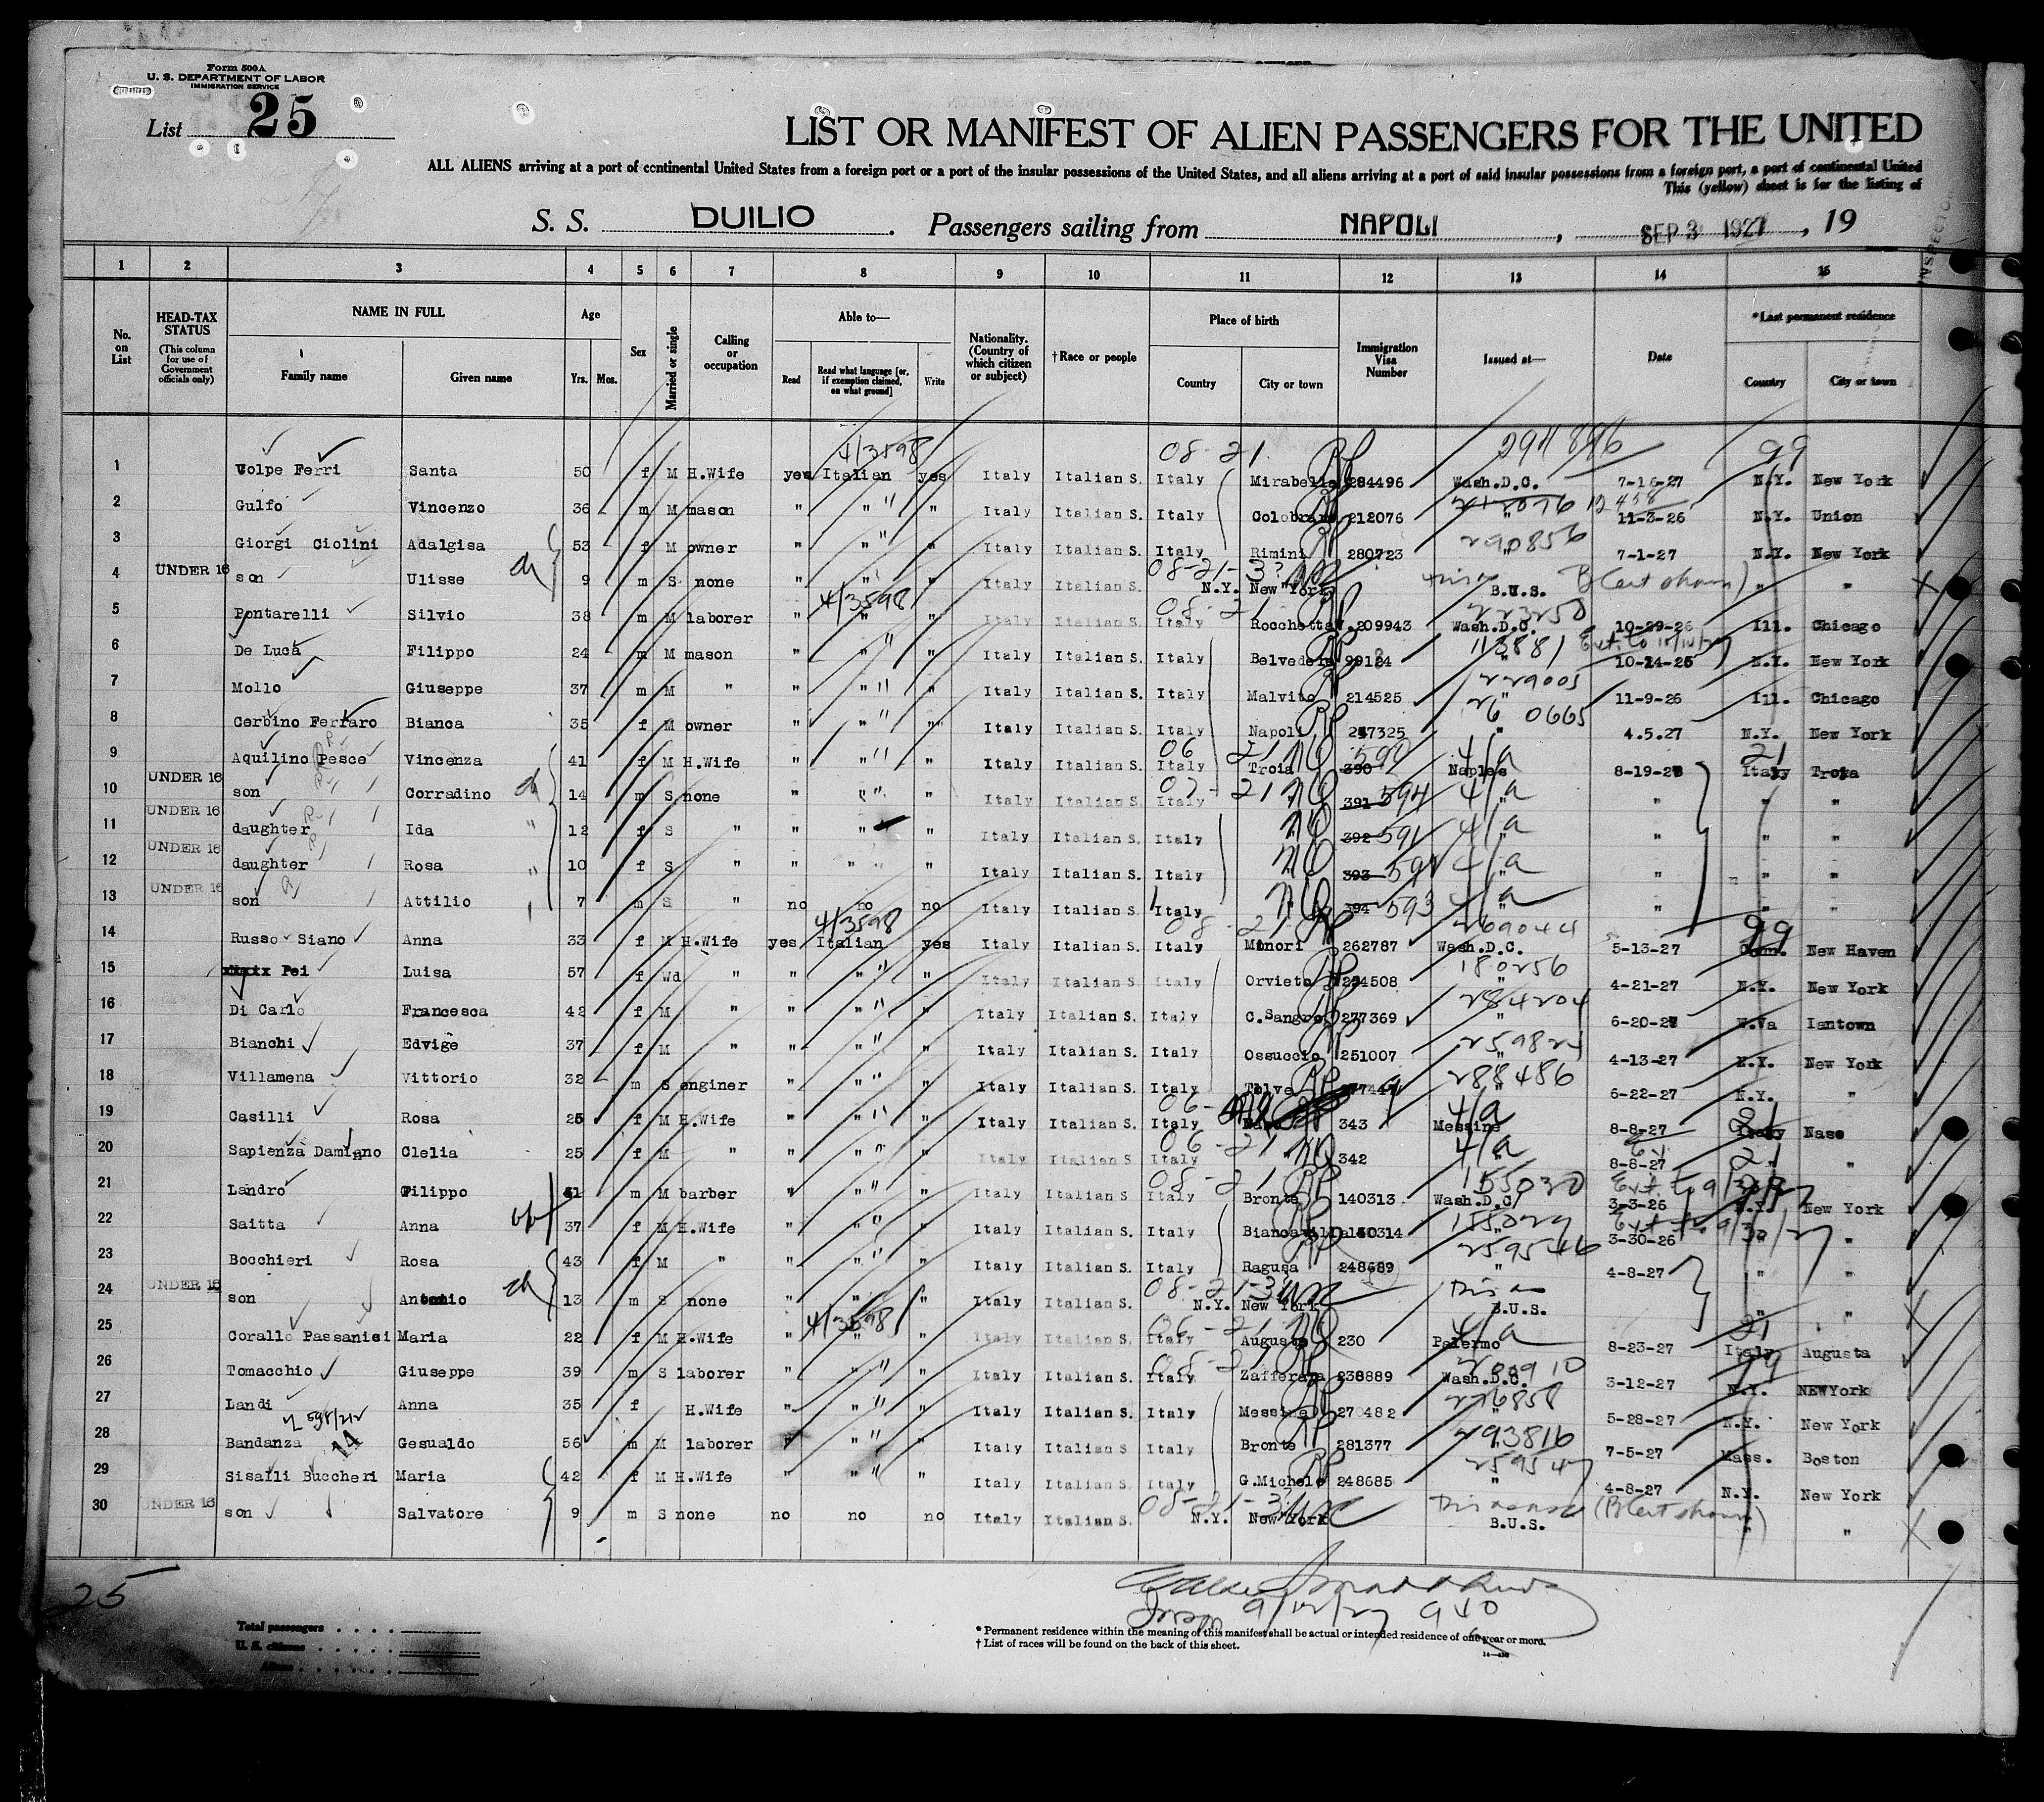 Form 500A
U. S. DEPARTMENT OF LABOR
IMMIGRATION SERVICE
List 25
LIST OR MANIFEST OF ALIEN PASSENGERS FOR THE UNITED
ALL ALIENS arriving at a port of continental United States from a foreign port or a port of the insular possessions of the United States, and all aliens arriving at a port of said insular possessions from a foreign port, a port of continental United
This (yellow) sheet is for the listing of
S. S. DUILIO . Passengers sailing from NAPOLI , SEP 3 1927 , 19
1 2 3 4 5 6 7 8 9 10 11 12 13 14 15
No. on List
HEAD-TAX STATUS (This column for use of Government officials only)
NAME IN FULL Family name Given name
Age Yrs. Mos.
Sex
Married or single
Calling or occupation
Able to— Read Read what language [or, if exemption claimed, on what ground] Write
Nationality. (Country of which citizen or subject)
†Race or people
Place of birth Country City or town
Immigration Visa Number
Issued at—
Date
*Last permanent residence Country City or town
4/3598 08-21 294896 99
1 Volpe Ferri Santa 50 f M H.Wife yes Italian yes Italy Italian S. Italy Mirabella 284496 Wash.D.C. 7-16-27 N.Y. New York
2 Gulfo Vincenzo 36 m M mason " " " Italy Italian S. Italy Colobraro 212076 " 11-3-26 N.Y. Union
290856
3 Giorgi Ciolini Adalgisa 53 f M owner " " " Italy Italian S. Italy Rimini 280723 7-1-27 N.Y. New York
08-21-3?
4 UNDER 16 son Ulisse 9 m S none " " " Italy Italian S. N.Y. New York B.U.S. (B Cert shown) " "
4/3598 08-21 223250
5 Pontarelli Silvio 38 m M laborer " " " Italy Italian S. Italy Rocchetta 209943 Wash.D.C. 10-29-26 Ill. Chicago
113881
6 De Luca Filippo 24 m M mason " " " Italy Italian S. Italy Belvedere 99124 " 10-14-25 N.Y. New York
229005
7 Mollo Giuseppe 37 m M " " " " Italy Italian S. Italy Malvito 214525 " 11-9-26 Ill. Chicago
260665
8 Cerbino Ferraro Bianca 35 f M owner " " "" Italy Italian S. Italy Napoli 247325 " 4.5.27 N.Y. New York
06 21 4/a 21
9 Aquilino Pesce Vincenza 41 f M H.Wife " " " Italy Italian S. Italy Troia 390 590 Naples 8-19-27 Italy Troia
10 UNDER 16 son Corradino 14 m S none " " " Italy Italian S. Italy 391 594 4/a " " "
11 UNDER 16 daughter Ida 12 f S " " " " Italy Italian S. Italy 392 591 4/a " " "
12 UNDER 16 daughter Rosa 10 f S " " " " Italy Italian S. Italy 393 4/a " " "
13 UNDER 16 son Attilio 7 m S " no no no Italy Italian S. Italy 394 593 4/a " " "
4/3598 08-21 269044 99
14 Russo Siano Anna 33 f M H.Wife yes Italian yes Italy Italian S. Italy Minori 262787 Wash.D.C. 5-13-27 Conn. New Haven
180256
15 Pei Luisa 57 f Wd " " " " Italy Italian S. Italy Orvieto 254508 " 4-21-27 N.Y. New York
284204
16 Di Carlo Francesca 42 f M " " " " Italy Italian S. Italy C.Sangro 277369 " 6-20-27 W.Va Iantown
17 Bianchi Edvige 37 f M " " " " Italy Italian S. Italy Ossuccio 251007 " 4-13-27 N.Y. New York
288486
18 Villamena Vittorio 32 m S enginer " " " Italy Italian S. Italy Tolve " 6-22-27 N.Y. "
06- 4/a 21
19 Casilli Rosa 25 f M H.Wife " " " Italy Italian S. Italy 343 Messina 8-8-27 Italy Naso
06-21 4/a 21
20 Sapienza Damiano Clelia 25 f M " " " " Italy Italian S. Italy 342 8-8-27 " "
08-21 155030
21 Landro Filippo 41 m M barber " " " Italy Italian S. Italy Bronte 140313 Wash.D.C. 3-3-26 N.Y. New York
155029 Ext to 9/30/27
22 Saitta Anna 37 f M H.Wife " " " Italy Italian S. Italy Biancavilla 140314 " 3-30-26 " "
259546
23 Bocchieri Rosa 43 f M " " " " Italy Italian S. Italy Ragusa 248689 " 4-8-27 " "
08-21-3?
24 UNDER 16 son Antonio 13 m S none " " " Italy Italian S. N.Y. New York B.U.S. " "
4/3598 06-21 4/a 21
25 Corallo Passanisi Maria 22 f M H.Wife " " " Italy Italian S. Italy Augusta 230 Palermo 8-23-27 Italy Augusta
08-21 200910 99
26 Tomacchio Giuseppe 39 m S laborer " " " Italy Italian S. Italy Zafferana 238889 Wash.D.C. 3-12-27 N.Y. NEWYork
276858
27 Landi Anna 35 f H.Wife " " " Italy Italian S. Italy Messina 270482 " 5-28-27 N.Y. New York
14 293816
28 Bandanza Gesualdo 56 m M laborer " " " Italy Italian S. Italy Bronte 281377 7-5-27 Mass. Boston
259547
29 Sisalli Buccheri Maria 42 f M H.Wife " " " Italy Italian S. Italy G.Michele 248685 " 4-8-27 N.Y. New York
08-21-3?
30 UNDER 16 son Salvatore 9 m S none no no no Italy Italian S. N.Y. New York B.U.S. (B Cert shown) " "
25
9/12/27 940
Total passengers
U. S. citizens
Aliens
* Permanent residence within the meaning of this manifest shall be actual or intended residence of one year or more.
† List of races will be found on the back of this sheet.